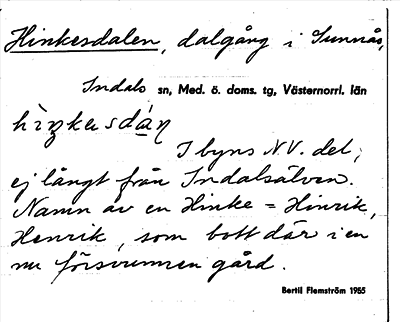 Hinkesdalen, dalgång i Sunnås,
Indals sn, Med. ö. doms. tg, Västernorrl. län
I byns N.V. del,
ej långt från Indalsälven.
Namn av en Hinke = Hinrik,
Henrik, som bott där i en
nu försvunnen gård.
Bertil Flemström 1965